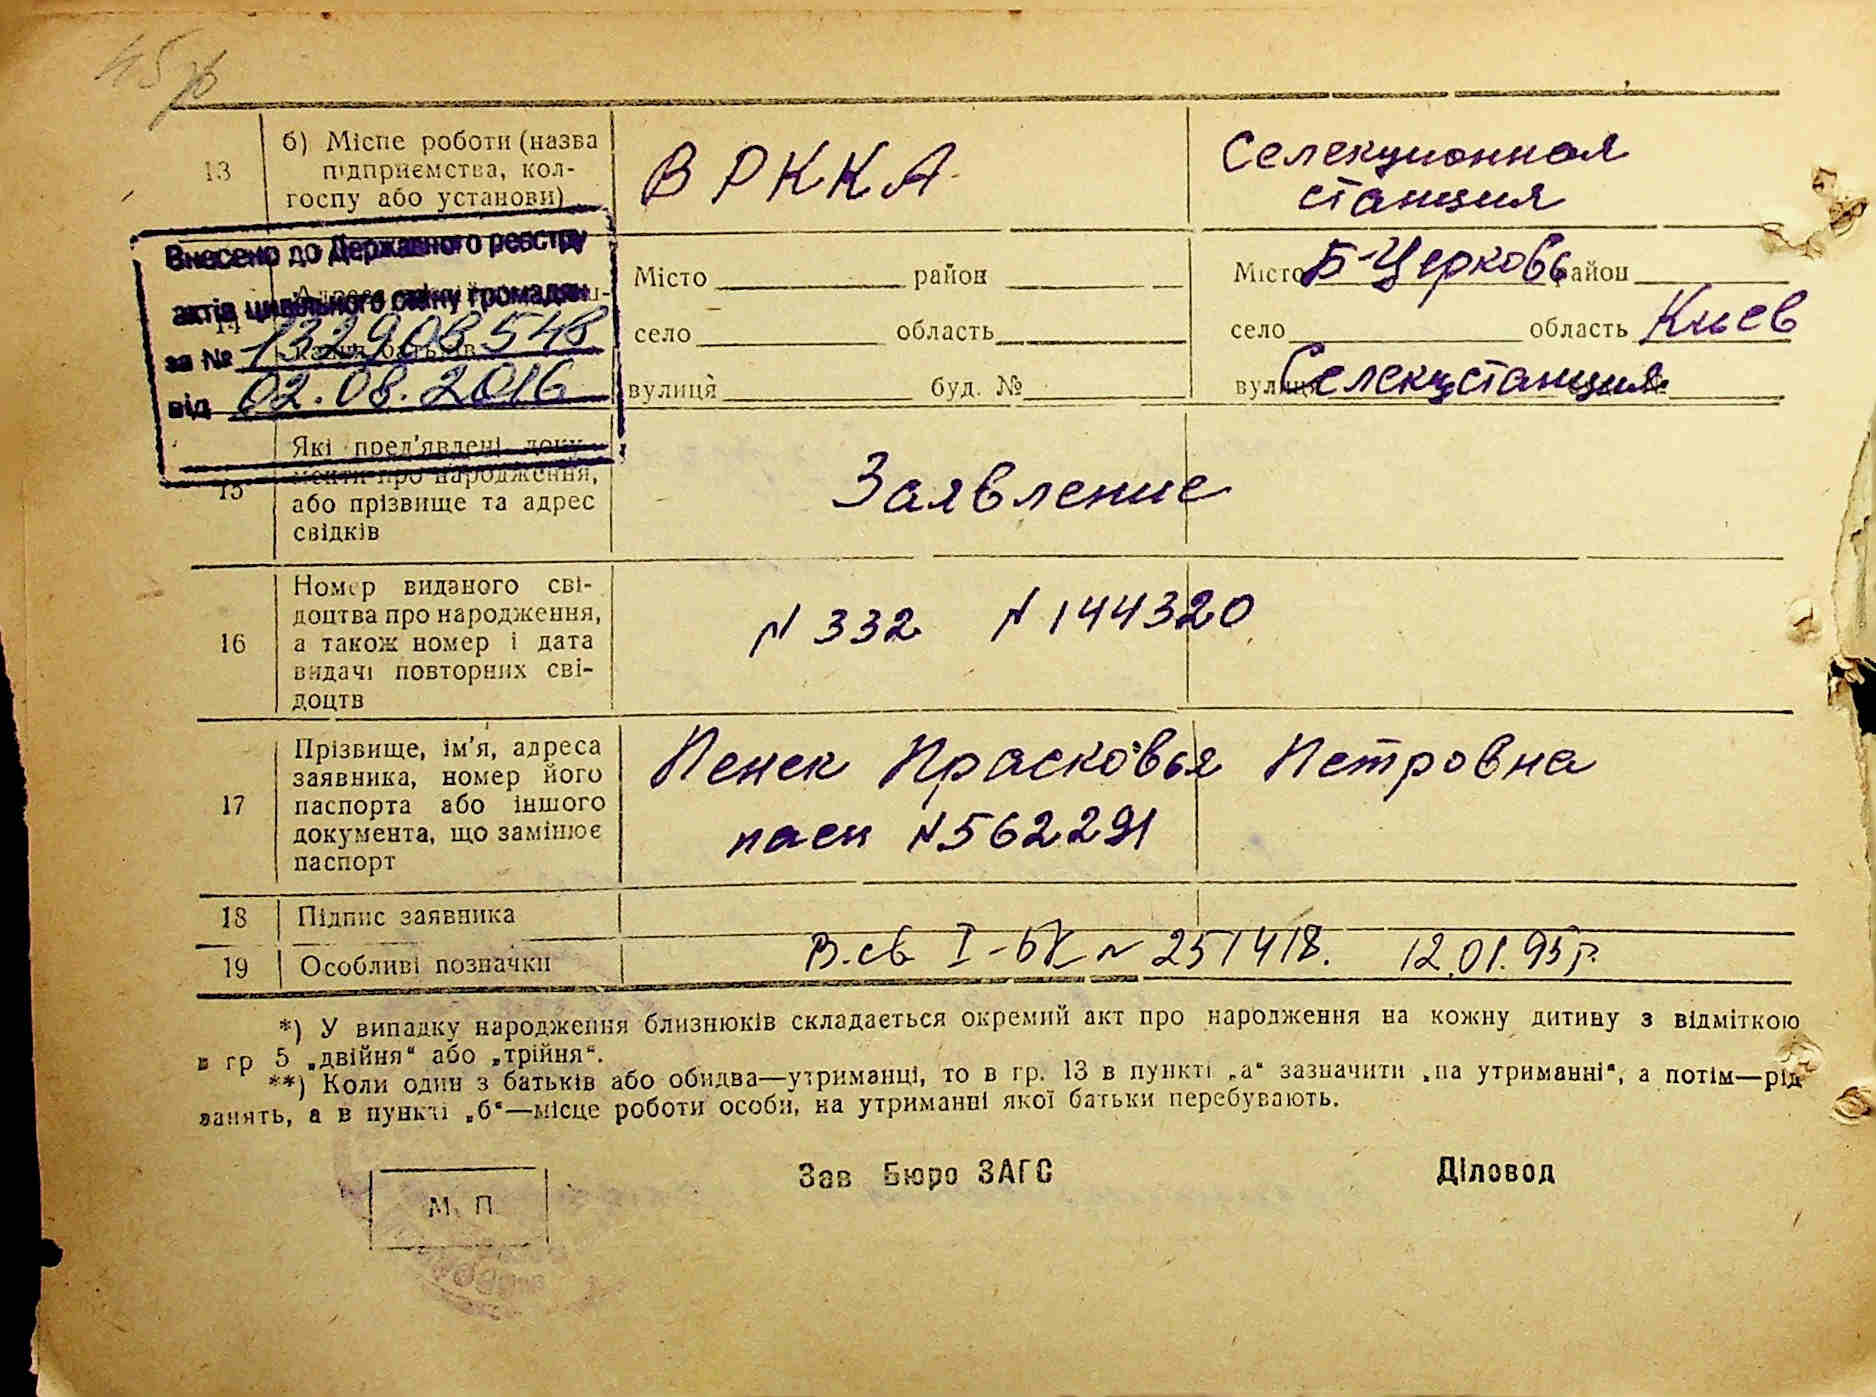 45
13
б) Місце роботи (назва
підприємства, кол-
госпу або установи)
В РККА
Селекционная
станция
Внесено до Державного реєстру
актів цивільного стану громадян
за № 132908548
від 02.08.2016
Місто район
село область
вулиця буд. №
Місто Б-Церковь район
село область Киев
вулиця Селекцстанция
15
Які пред'явлені доку-
менти про народження,
або прізвище та адрес
свідків
Заявление
16
Номер виданого сві-
доцтва про народження,
а також номер і дата
видачі повторних сві-
доцтв
N 332 N 144320
17
Прізвище, ім'я, адреса
заявника, номер його
паспорта або іншого
документа, що замінює
паспорт
Пенек Прасковья Петровна
пасп N 562291
18 Підпис заявника
19 Особливі позначки
В. св I-БК N 251418. 12.01.95р.
*) У випадку народження близнюків складається окремий акт про народження на кожну дитину з відміткою
в гр 5 „двійня“ або „трійня“.
**) Коли один з батьків або обидва—утриманці, то в гр. 13 в пункті „а“ зазначити „на утриманні“, а потім—рід
занять, а в пункті „б“—місце роботи особи, на утриманні якої батьки перебувають.
Зав Бюро ЗАГС Діловод
М. П.